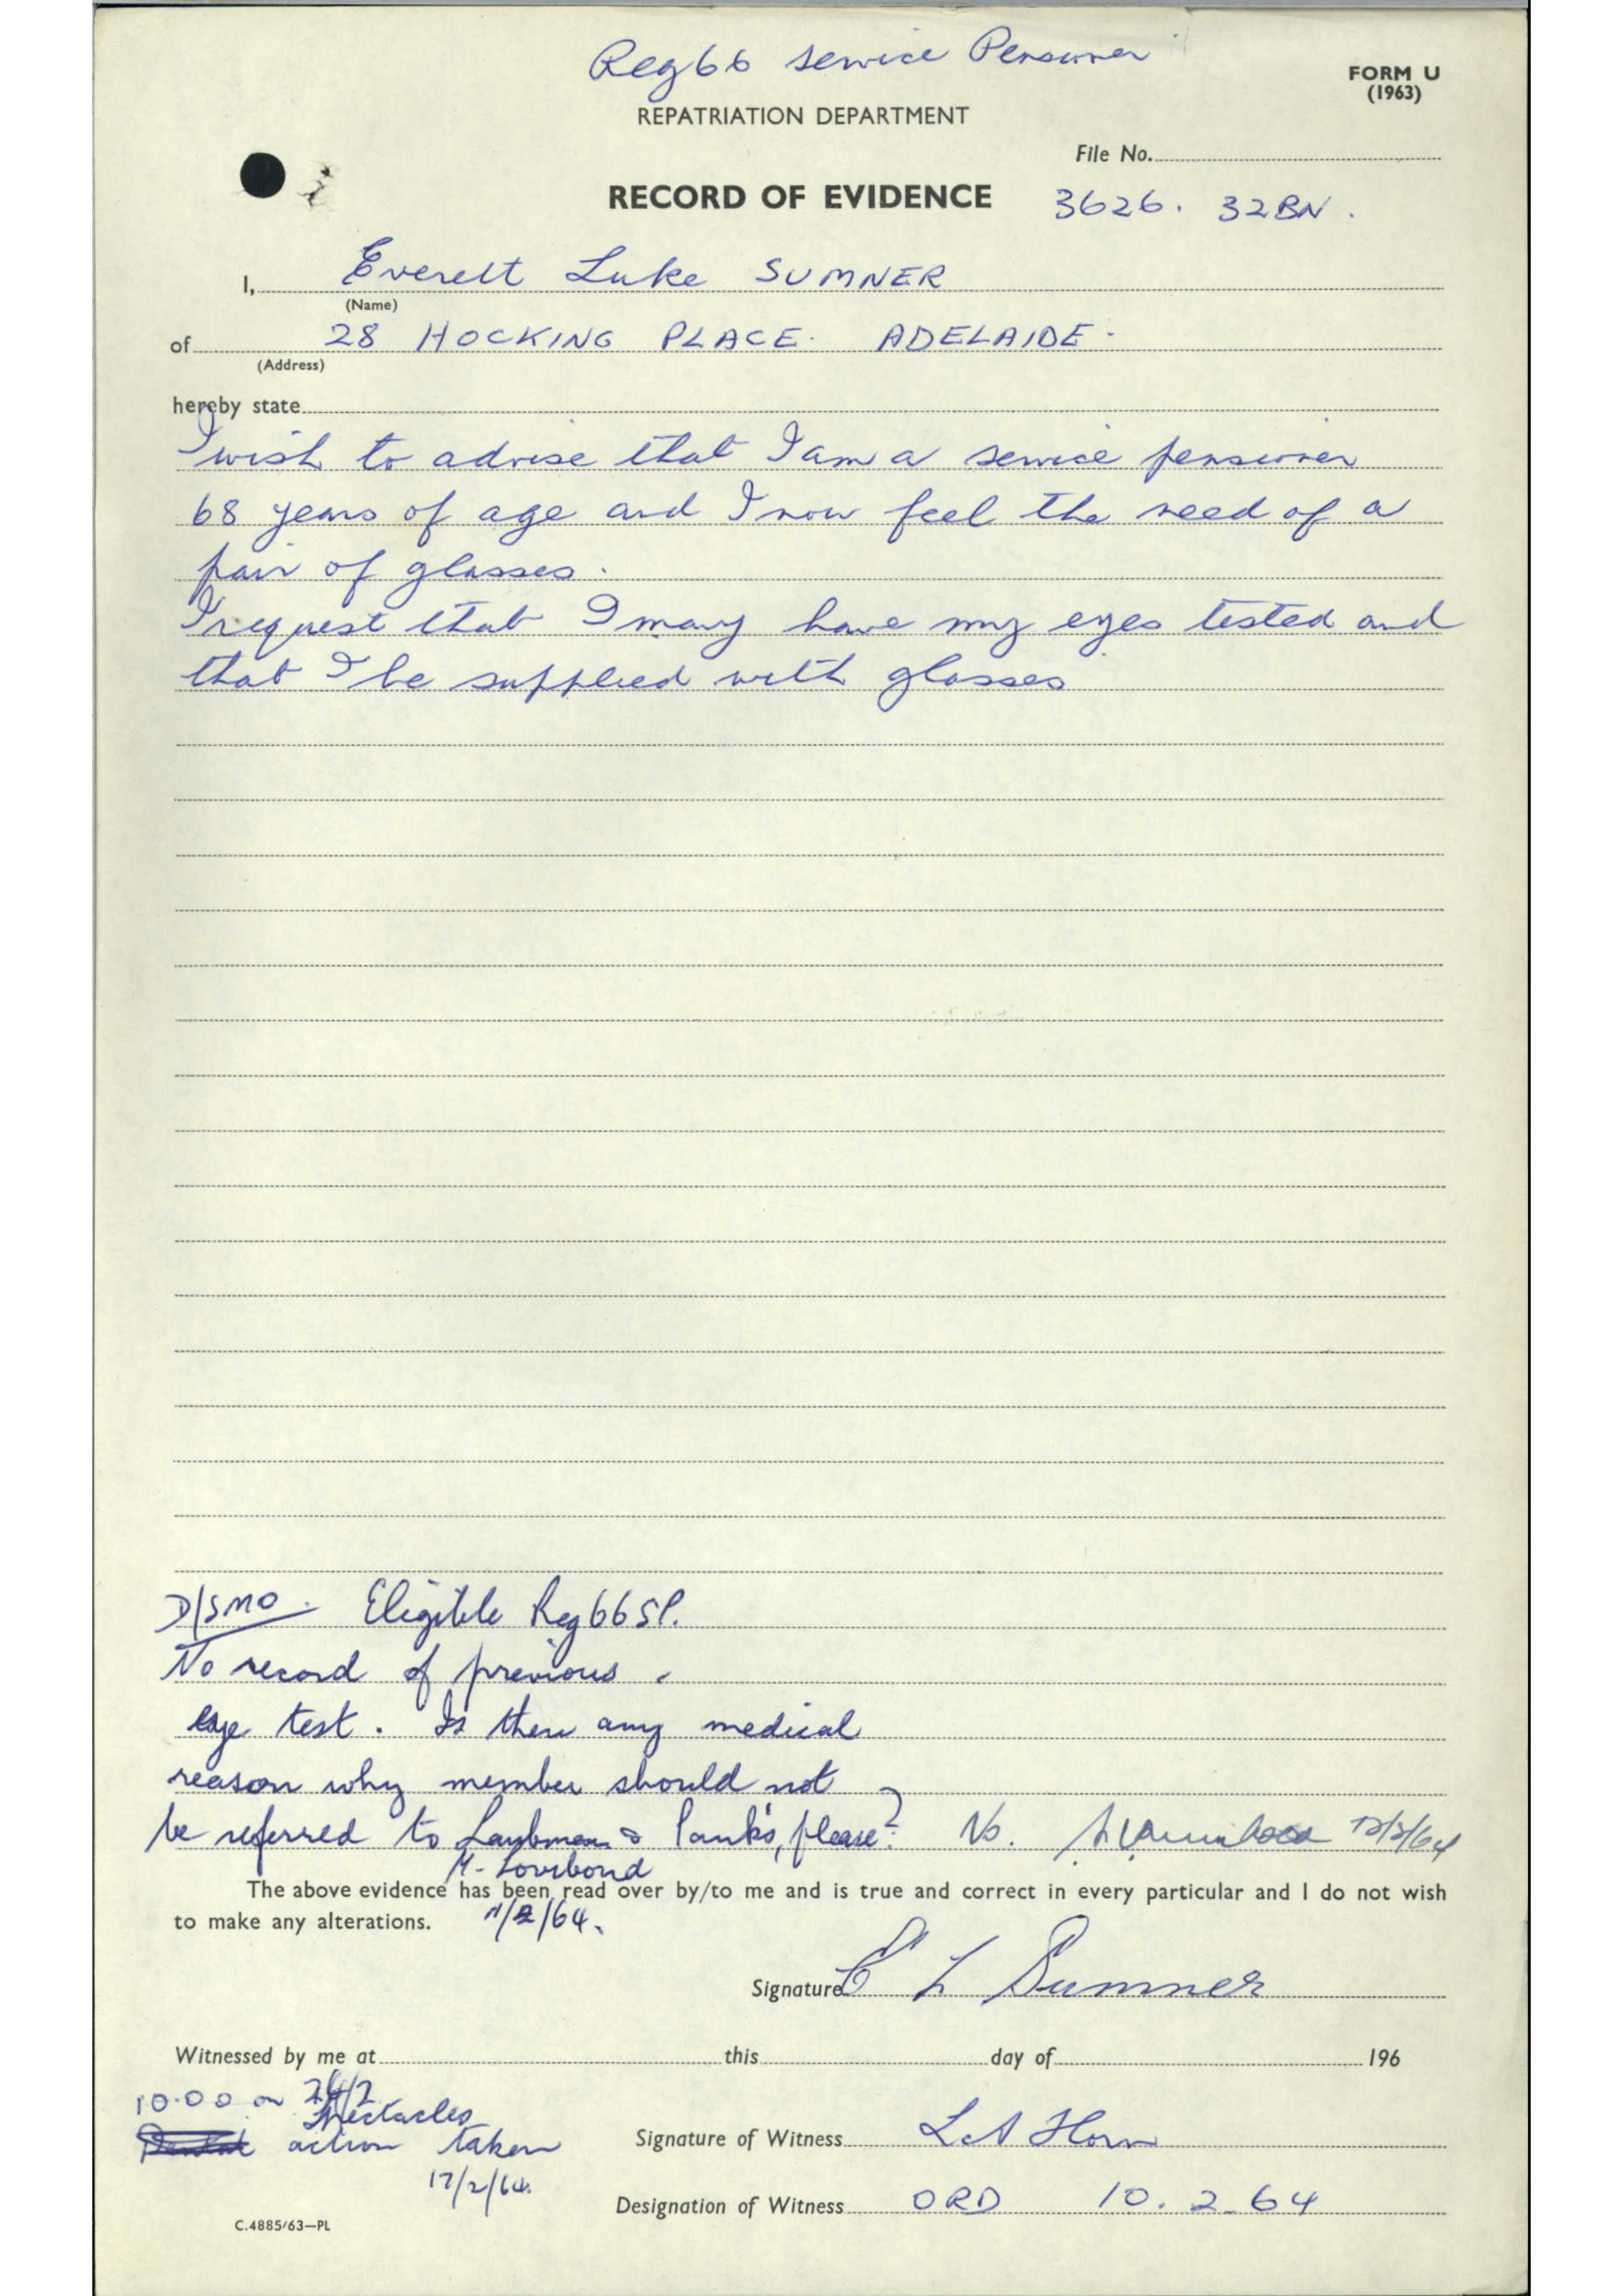 Reg 66 Service Pensioner
FORM U
(1963)
REPATRIATION DEPARTMENT
File No.
RECORD OF EVIDENCE 3626. 32BN.
I, Everett Luke SUMNER
(Name)
of 28 HOCKING PLACE. ADELAIDE.
(Address)
hereby state
I wish to advise that I am a service pensioner
68 years of age and I now feel the need of a
pair of glasses.
I request that I may have my eyes tested and
that I be supplied with glasses
D/SMO. Eligible Reg 66 SP.
No record of previous
eye test. Is there any medical
reason why member should not
be referred to Laubman & Pank's, please? No.
M. Lovibond
The above evidence has been read over by/to me and is true and correct in every particular and I do not wish
to make any alterations. 11/2/64.
Signature E L Sumner
Witnessed by me at this day of 196
10.00 on
Spectacles
action taken
Signature of Witness L A Horn
17/2/64.
Designation of Witness ORD 10.2.64
C.4885/63—PL